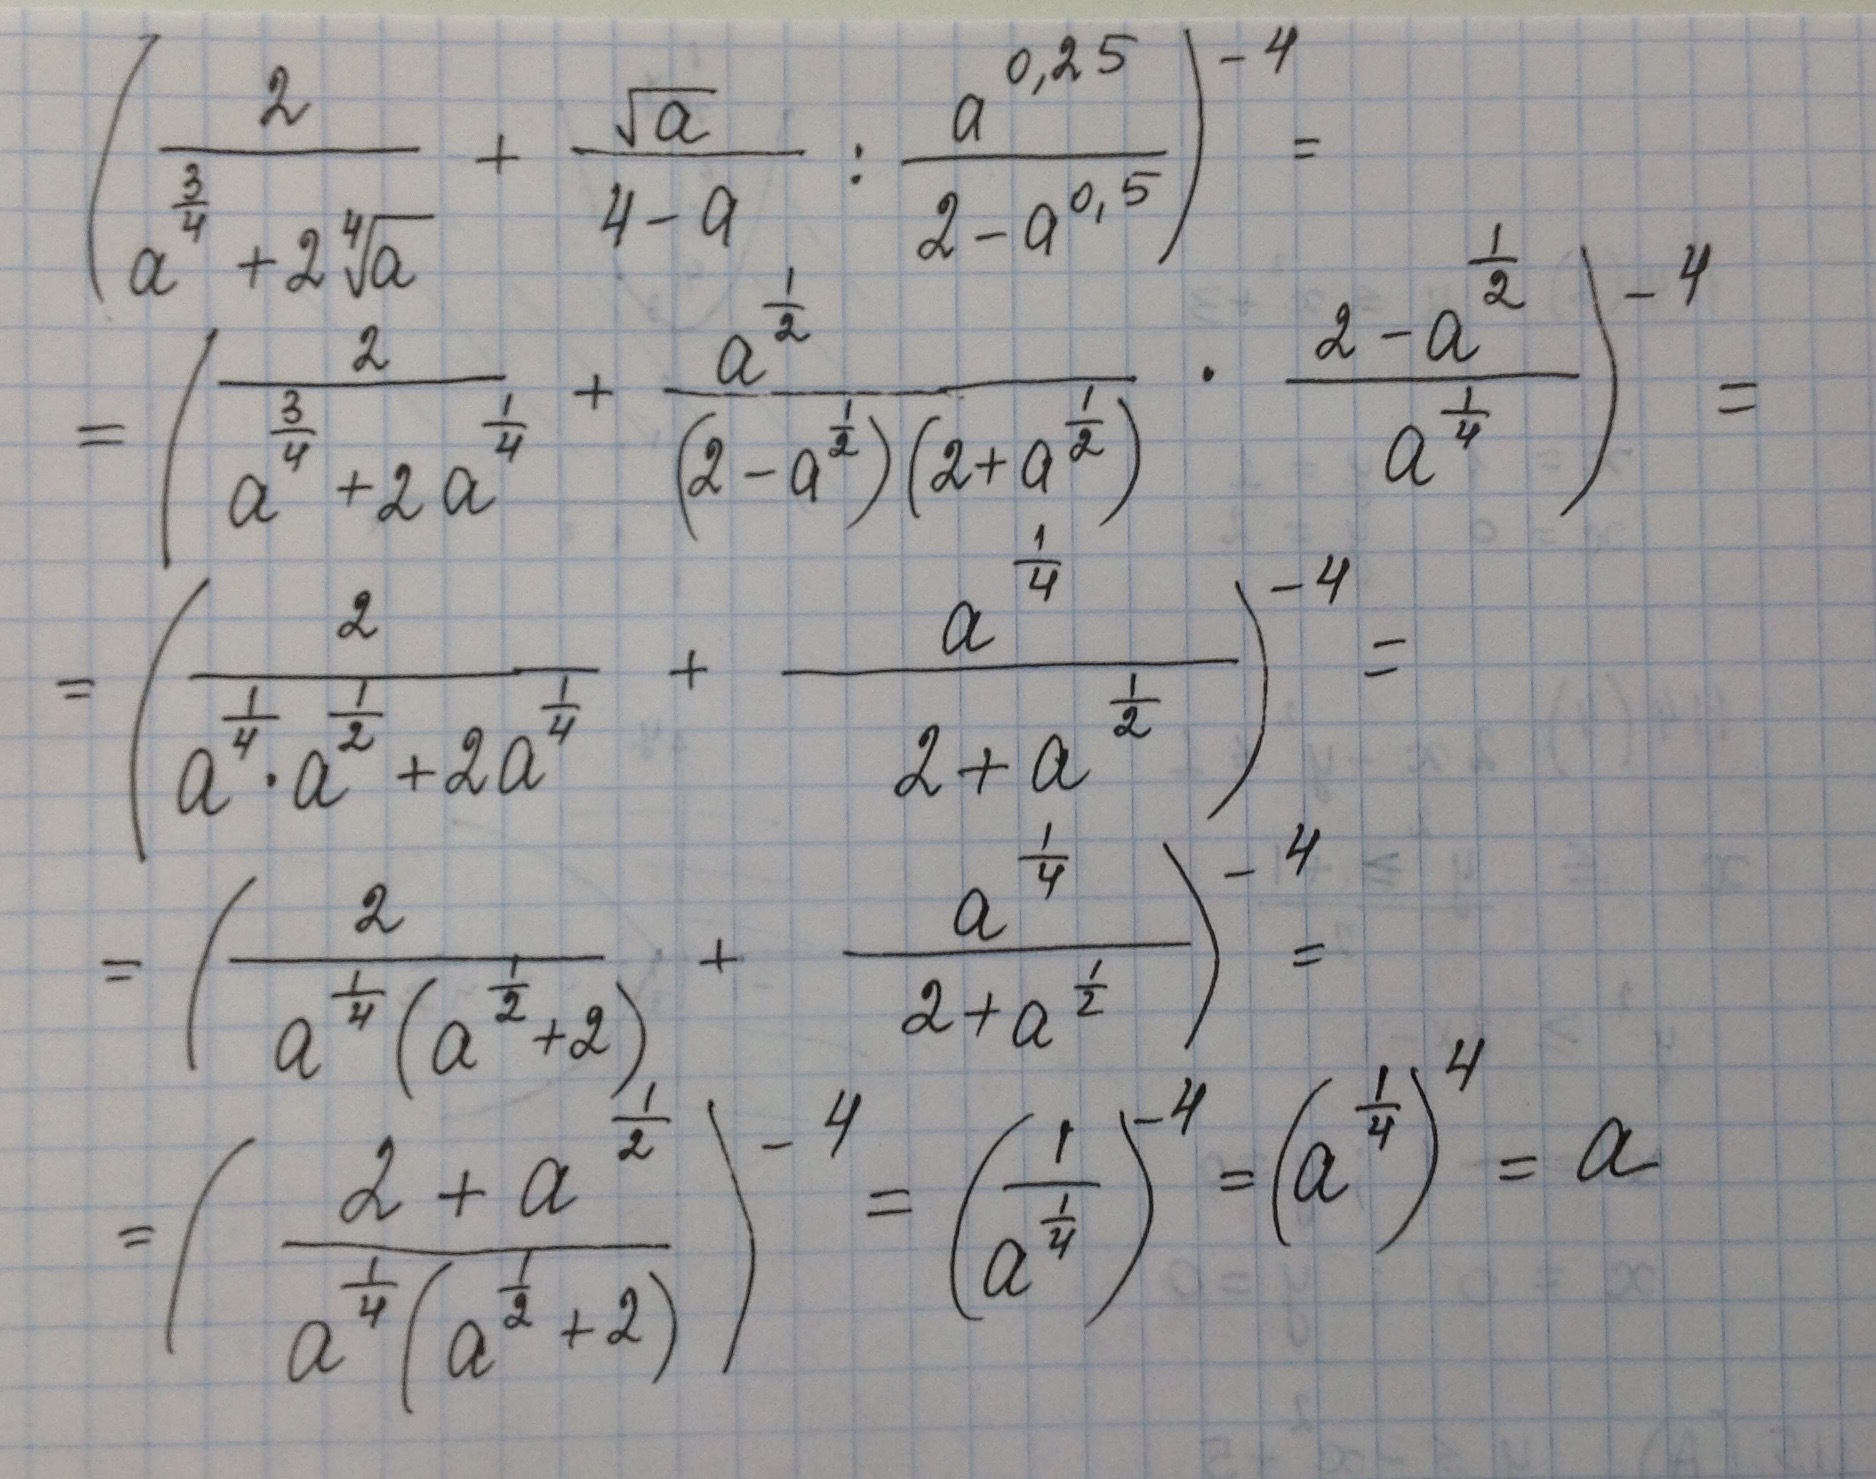 (2/(a^(3/4) + 2∜a) + √a/(4 - a) : a^(0,25)/(2 - a^(0,5)))^(-4) =
= (2/(a^(3/4) + 2a^(1/4)) + a^(1/2)/((2 - a^(1/2))(2 + a^(1/2))) · (2 - a^(1/2))/a^(1/4))^(-4) =
= (2/(a^(1/4) · a^(1/2) + 2a^(1/4)) + a^(1/4)/(2 + a^(1/2)))^(-4) =
= (2/(a^(1/4)(a^(1/2) + 2)) + a^(1/4)/(2 + a^(1/2)))^(-4) =
= ((2 + a^(1/2))/(a^(1/4)(a^(1/2) + 2)))^(-4) = (1/a^(1/4))^(-4) = (a^(1/4))^4 = a